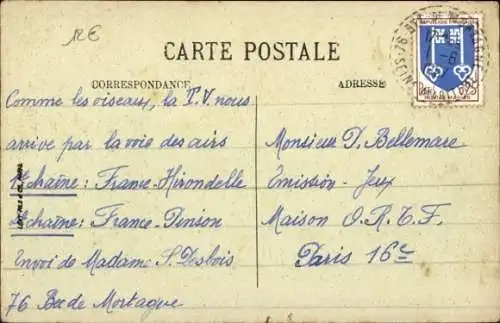 1 €
CARTE POSTALE
CORRESPONDANCE
ADRESSE
Comme les oiseaux, la T.V. nous
arrive par la voie des airs
1e chaîne : France-Hirondelle
2e chaîne : France-Pinson
Envoi de Madame S. Desbois
76 Bec de Mortagne
Monsieur P. Bellemare
Émission - Jeux
Maison O.R.T.F.
Paris 16e